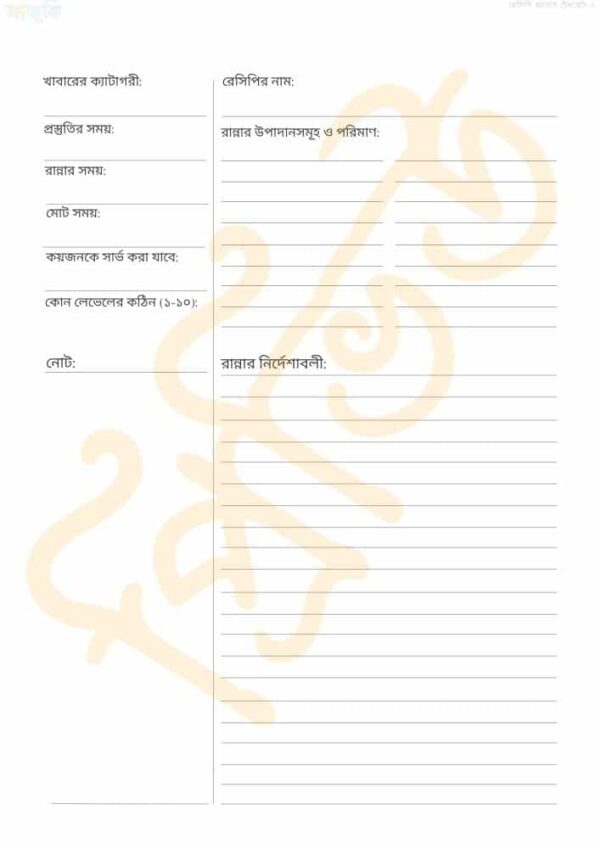 খাবারের ক্যাটাগরী:
প্রস্তুতির সময়:
রান্নার সময়:
মোট সময়:
কয়জনকে সার্ভ করা যাবে:
কোন লেভেলের কঠিন (১-১০):
নোট:
রেসিপির নাম:
রান্নার উপাদানসমূহ ও পরিমাণ:
রান্নার নির্দেশাবলী: